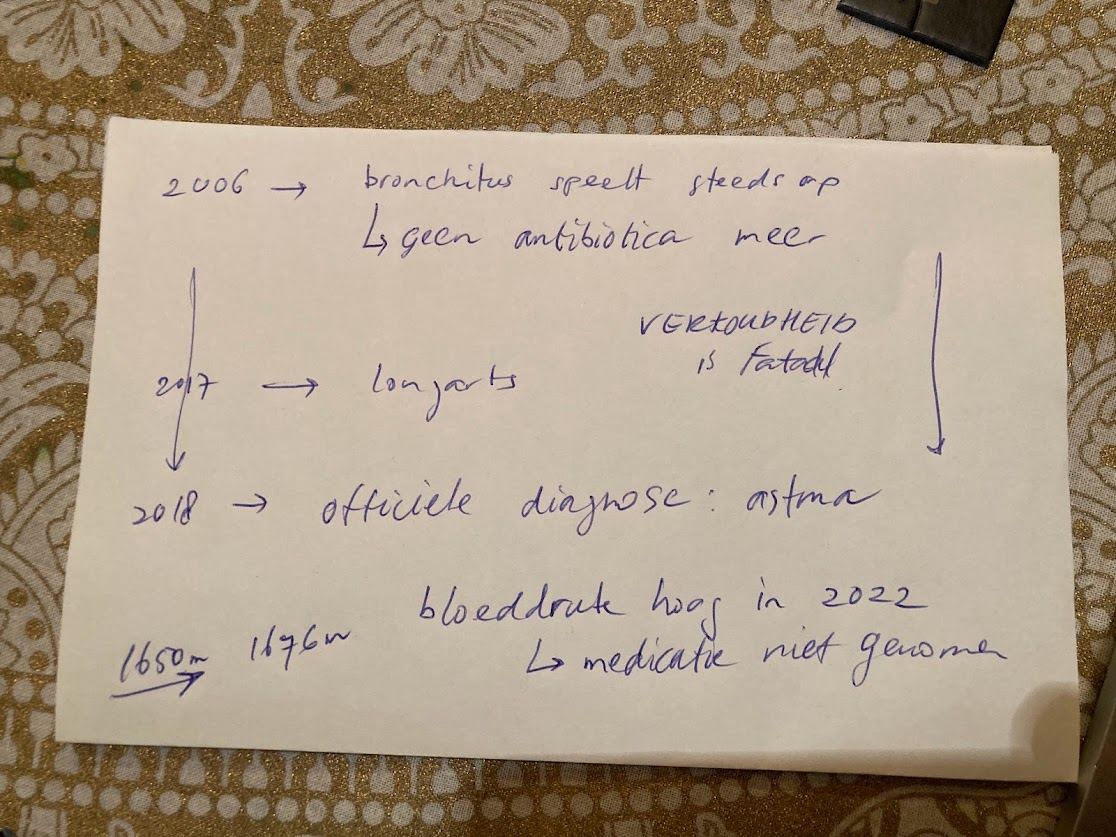 2006 → bronchitus speelt steeds op
↳ geen antibiotica meer
VERKOUDHEID
is Fataal
2017 → longarts
2018 → officiele diagnose : astma
bloeddruk hoog in 2022
↳ medicatie niet genomen
1650m 1676m